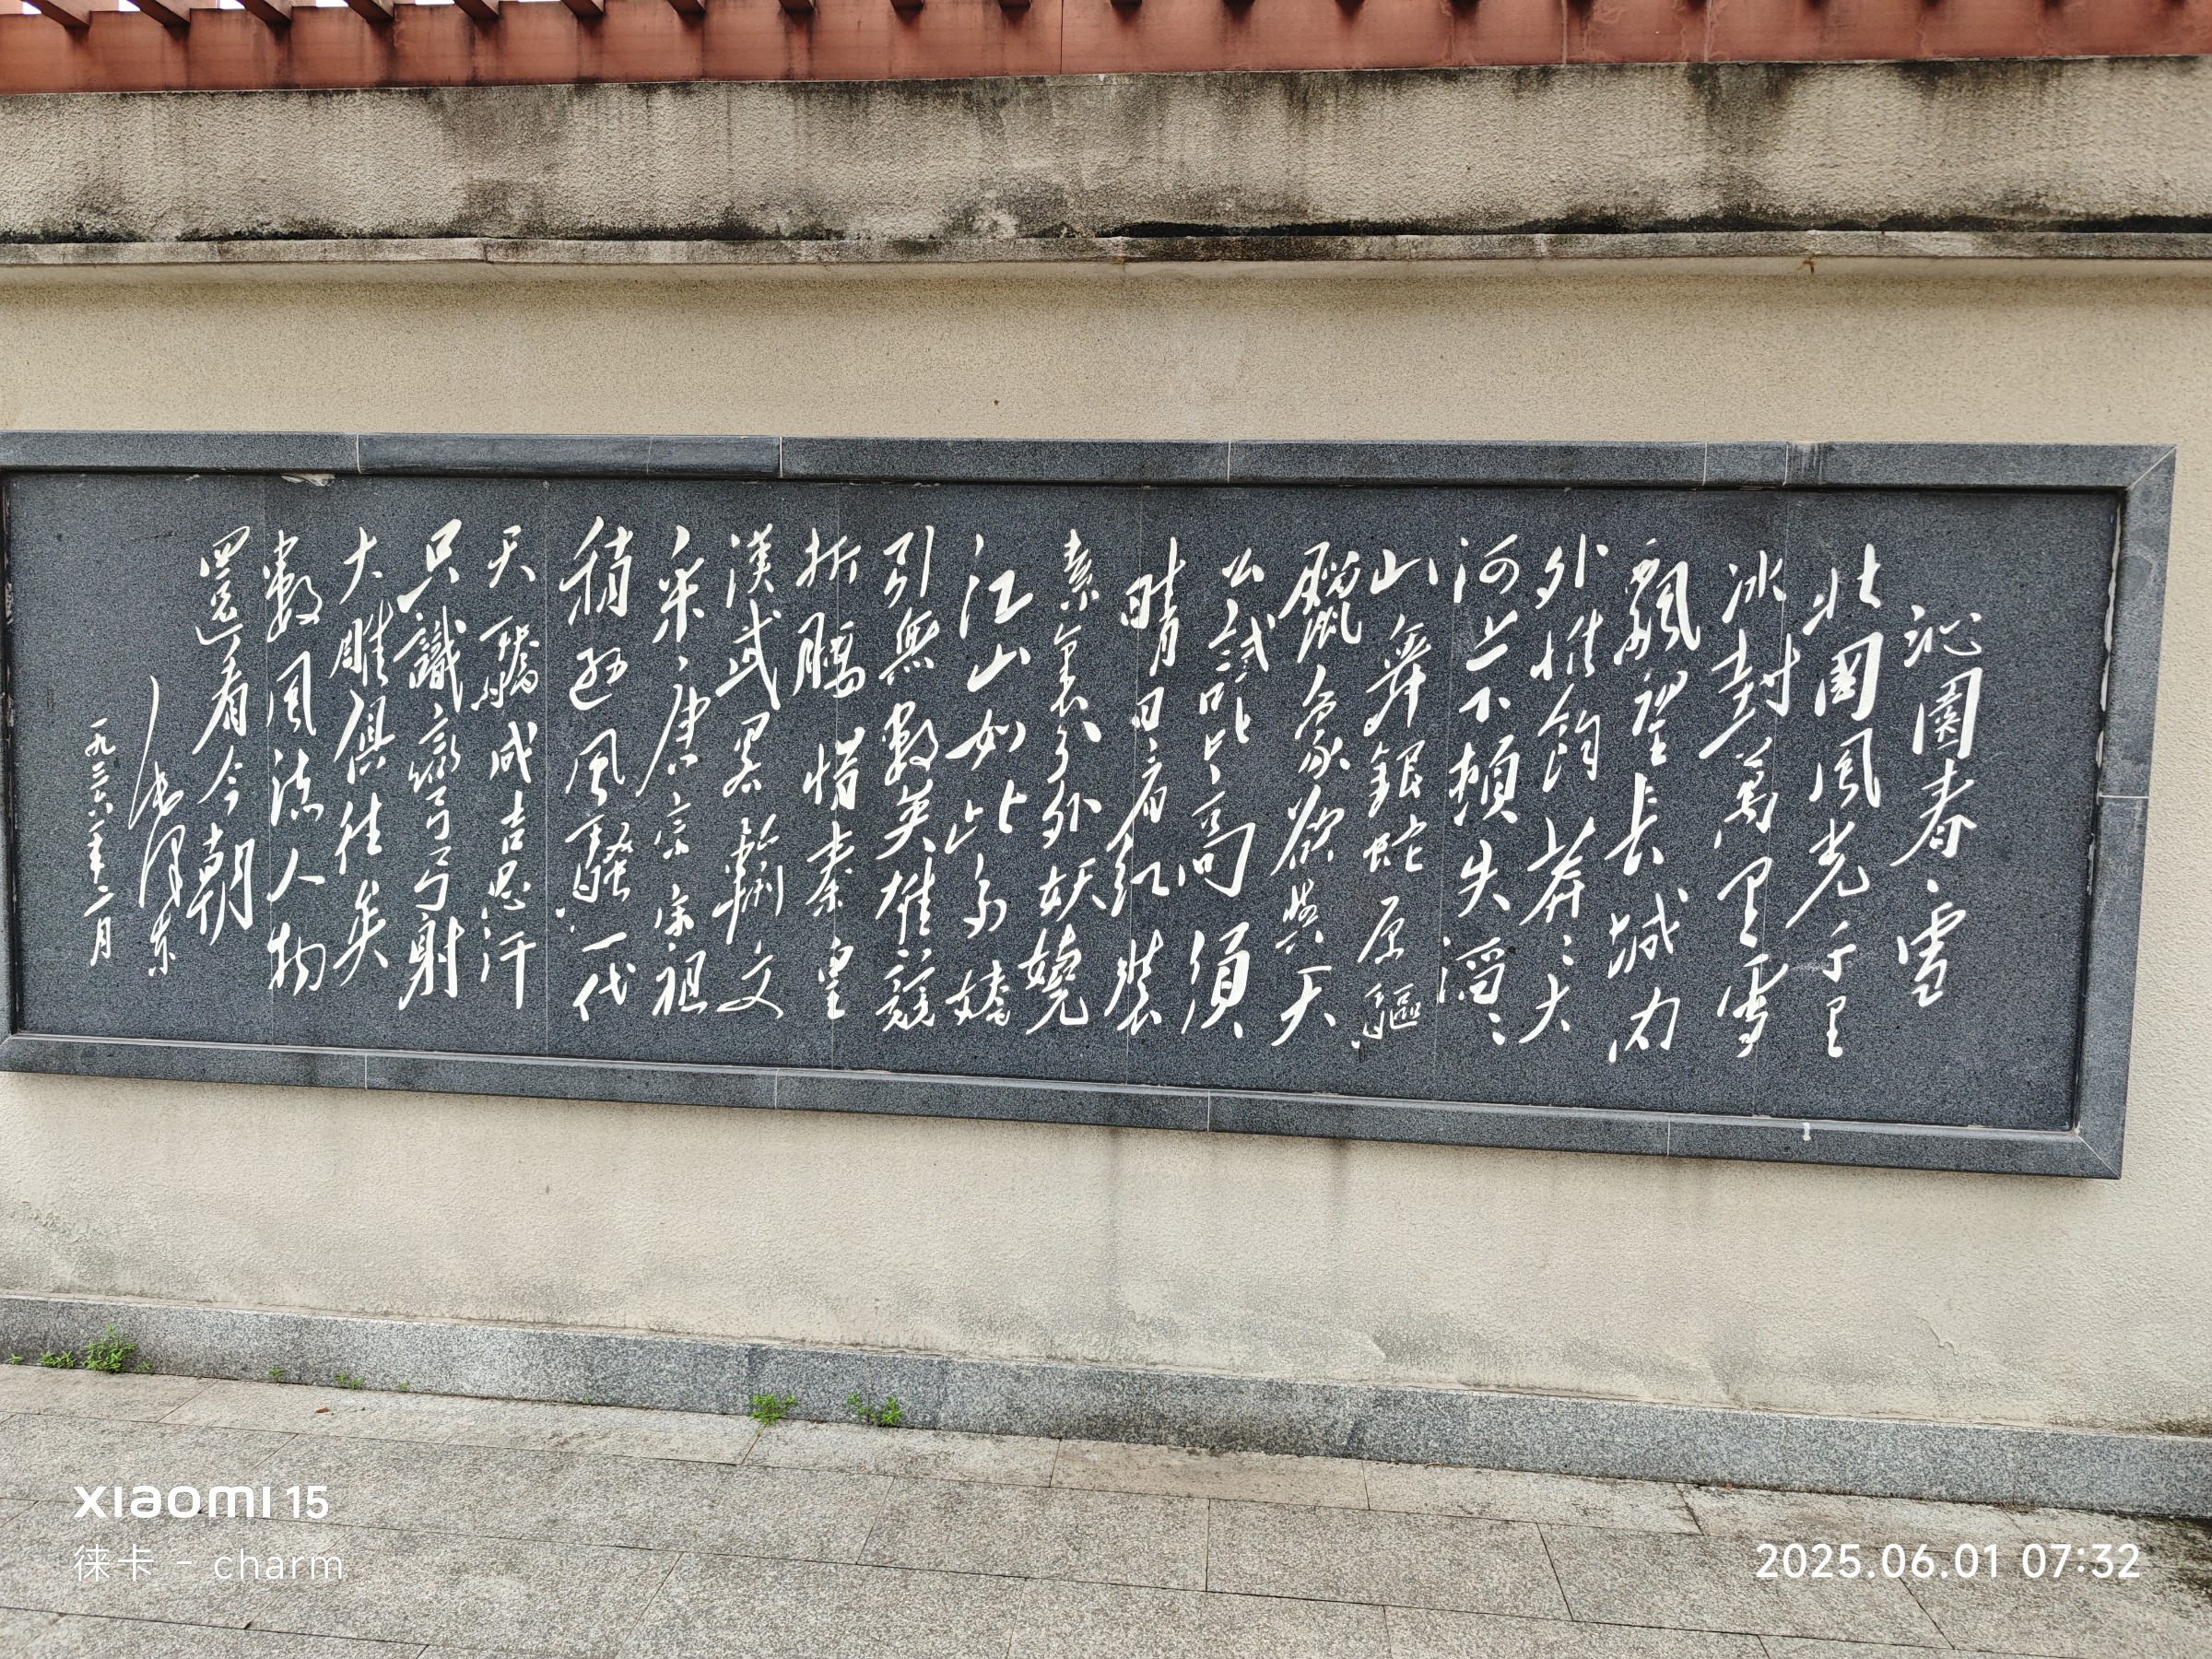 沁園春、雪
北國風光千里
冰封萬里雪
飄望長城内
外惟餘莽〻大
河上下頓失滔〻
山舞銀蛇原驅
臘象欲與天
公試比高須
晴日看紅裝
素裹分外妖嬈
江山如此多嬌
引無數英雄競
折腰惜秦皇
漢武略輸文
采、唐宗宋祖
稍遜風騷一代
天驕成吉思汗
只識彎弓射
大雕俱往矣
數風流人物
還看今朝
毛澤東
一九三六年二月
xiaomi 15
徕卡 - charm
2025.06.01 07:32